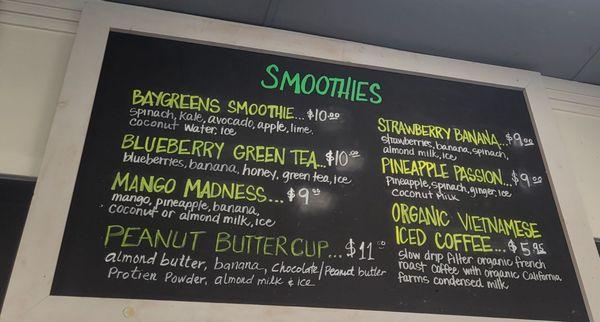 SMOOTHIES
BAYGREENS SMOOTHIE...$10.00
spinach, kale, avocado, apple, lime,
coconut water, ice
BLUEBERRY GREEN TEA...$10.00
blueberries, banana, honey, green tea, ice
MANGO MADNESS...$9
mango, pineapple, banana,
coconut or almond milk, ice
PEANUT BUTTER CUP...$11.00
almond butter, banana, chocolate/Peanut butter
Protien Powder, almond milk & ice
STRAWBERRY BANANA...$9.00
strawberries, banana, spinach,
almond milk, ice
PINEAPPLE PASSION...$9.00
Pineapple, spinach, ginger, ice
coconut milk
ORGANIC VIETNAMESE
ICED COFFEE...$5.95
slow drip filter organic french
roast coffee with organic California
farms condensed milk